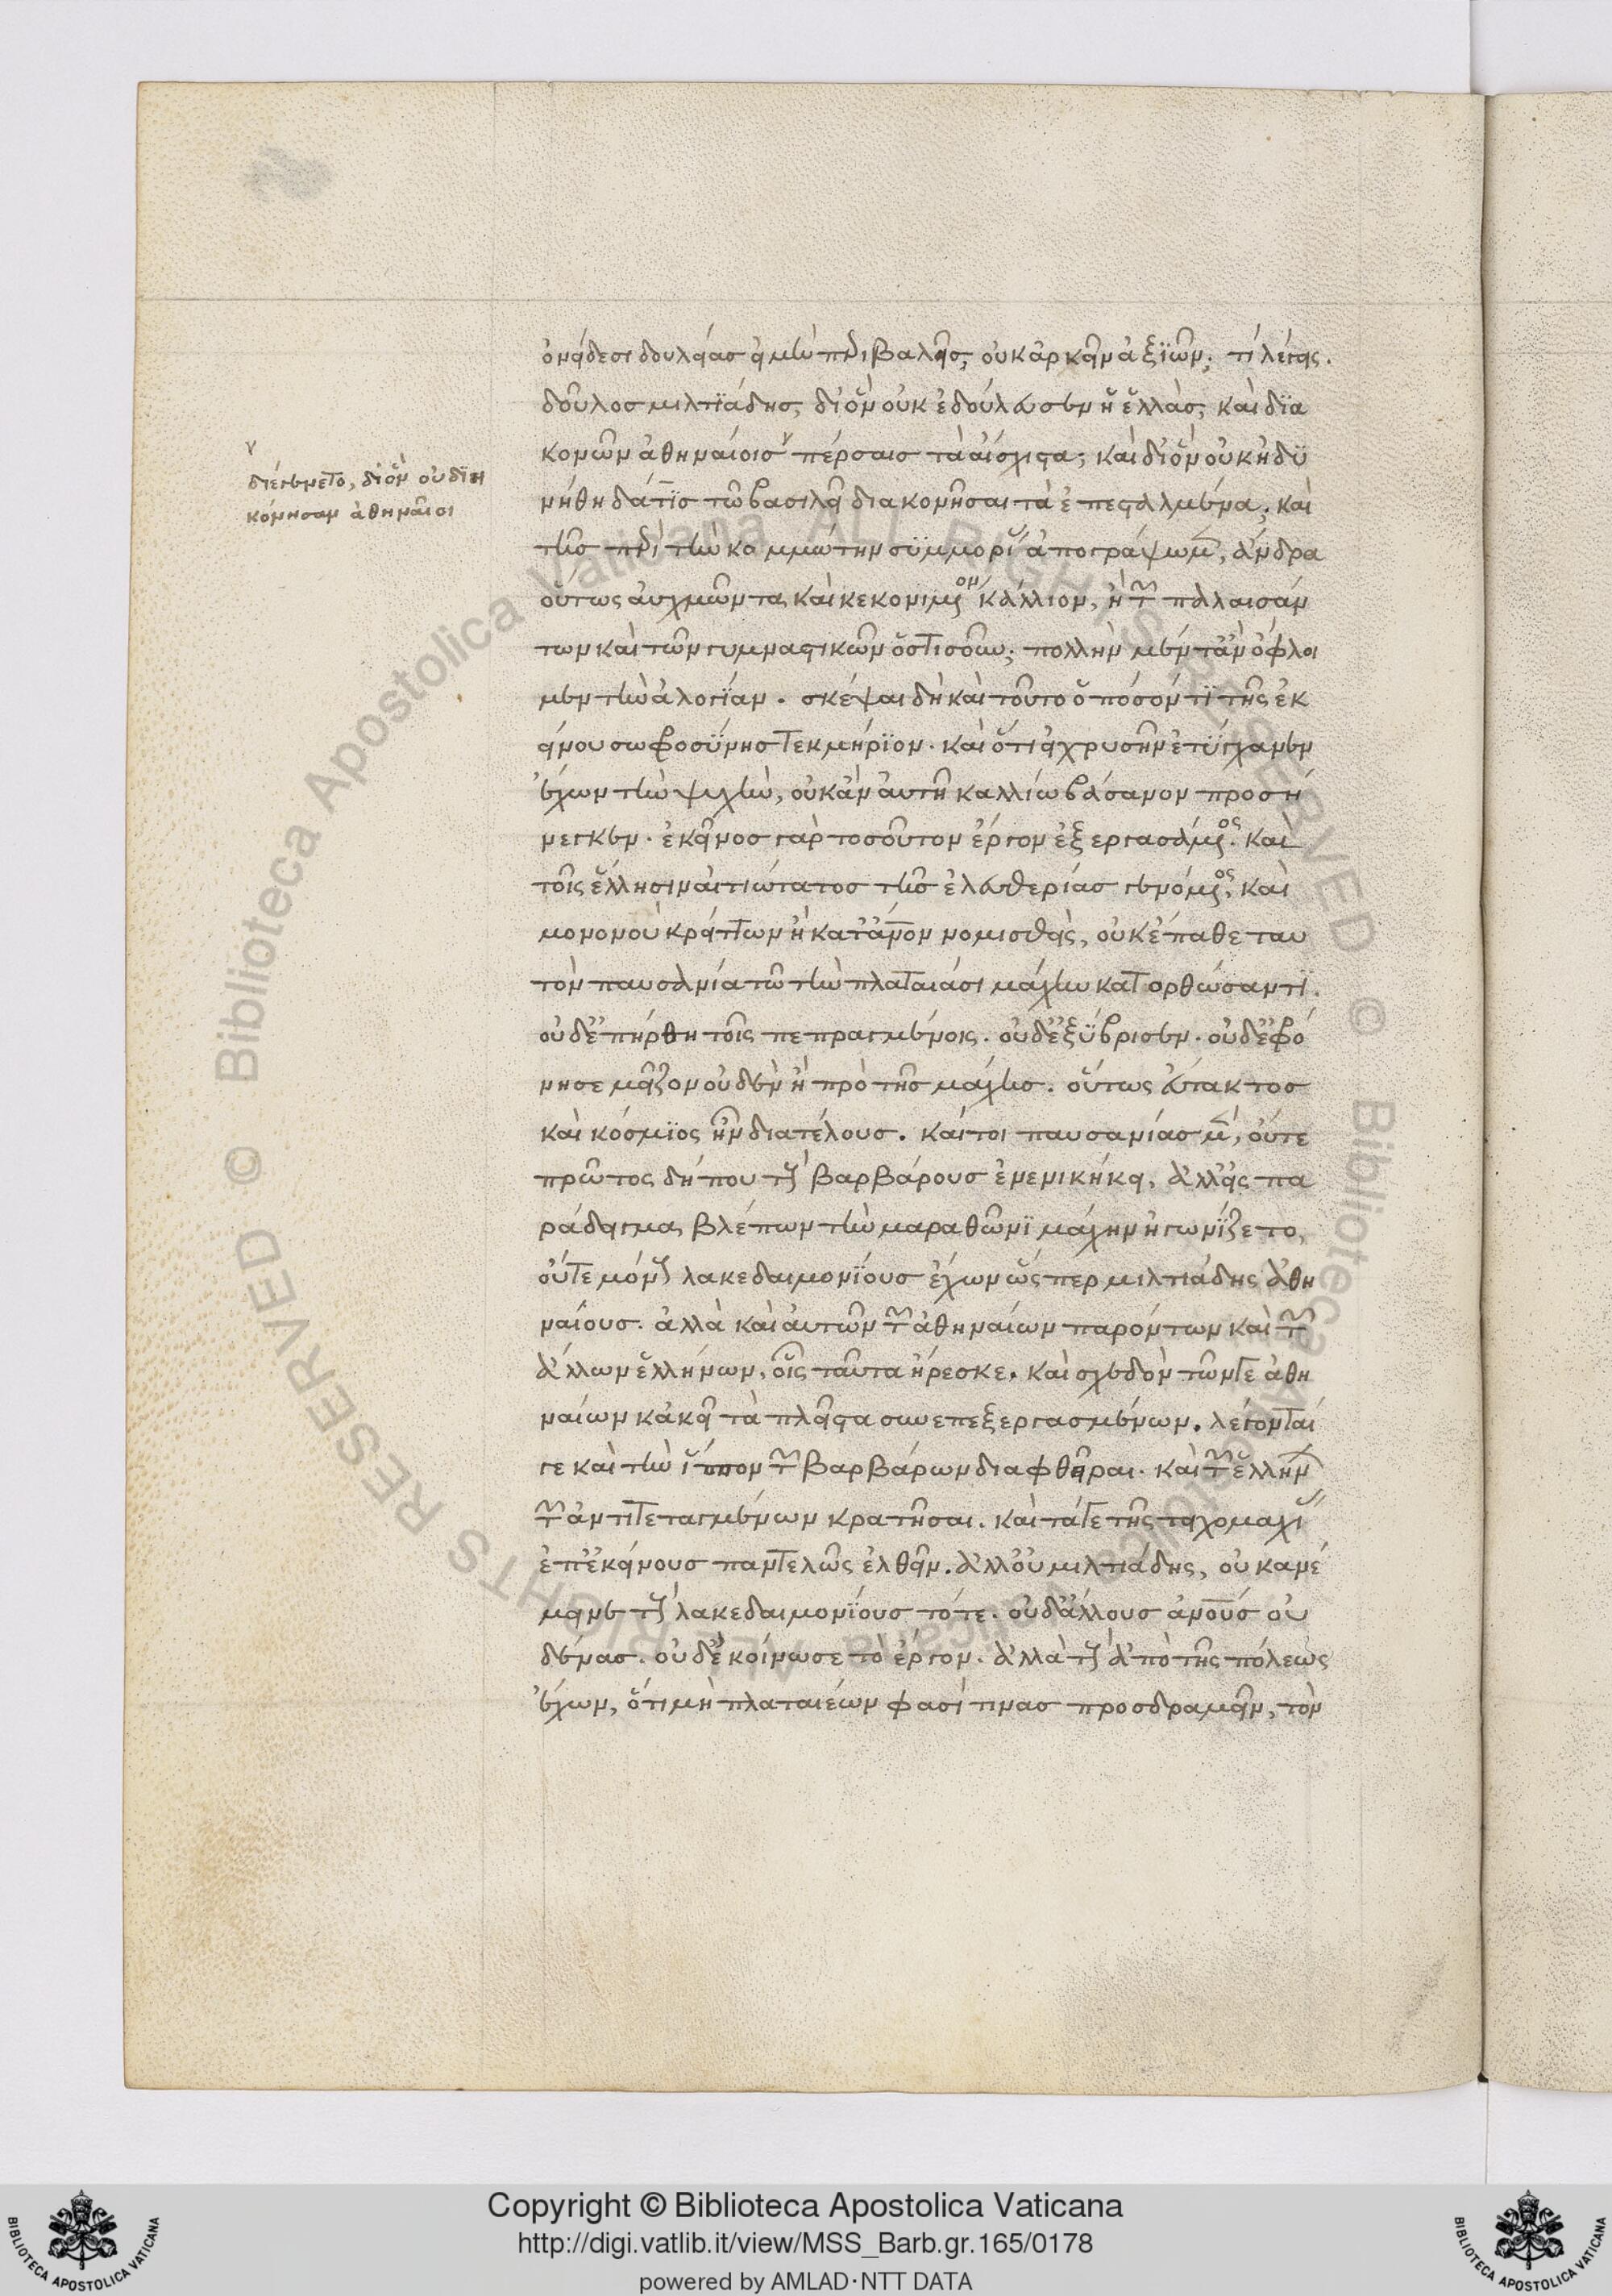 ὀνείδεσι δουλείας ἡμῖν περιβαλεῖς; οὐκ ἀρκεῖν ἀξιῶν; τί λέγεις.
δοῦλος μιλτϊάδης, δι' ὃν οὐκ ἐδούλευσεν ἡ ἑλλὰς; καὶ δϊα
κονῶν ἀθηναίοις πέρσαις τὰ αἴσχιστα; καὶ δι' ὃν οὐκ ἠδυ
νήθη δάτϊς τῶ βασιλεῖ διακονῆσαι τὰ ἐπεσταλμένα; καὶ
διεγένετο, δι' ὃν οὐ δϊη
κόνησαν ἀθηναῖοι
τῆς περὶ τὴν κομμώτην συμμορί ἀπογράψωμεν, ἄνδρα
οὕτως αὐχμῶντα καὶ κεκονιμένον κάλλιον, ἢ τῶν παλαισάν
των καὶ τῶν γυμναστικῶν ὁστισοῦν; πολλὴν μέν τἂν ὄφλοι
μεν τὴν ἀλογίαν. σκέψαι δὴ καὶ τοῦτο ὁπόσόν τϊ τῆς ἐκ
είνου σωφροσύνης τεκμήρϊον. καὶ ὅτι εἰ χρυσῆν ἐτύγχανεν
ἔχων τὴν ψυχὴν, οὐκ ἂν αὐτῆ καλλίω βάσανον προσή
νεγκεν. ἐκεῖνος γὰρ τοσοῦτον ἔργον ἐξεργασάμενος. καὶ
τοῖς ἕλλησιν αἰτιώτατος τῆς ἐλευθερίας γενόμενος, καὶ
μονονοὺ κρείττων ἢ κατ' ἄνον νομισθεὶς, οὐκ ἔπαθε ταυ
τὸν παυσανία τῶ τὴν πλαταιάσι μάχην κατορθώσαντϊ.
οὐδ' ἐπήρθη τοῖς πεπραγμένοις. οὐδ' ἐξύβρισεν. οὐδ' ἐφρό
νησε μεῖζον οὐδὲν ἢ πρὸ τῆς μάχης. οὕτως εὔτακτος
καὶ κόσμϊος ἦν διατέλους. καίτοι παυσανίας μὲν, οὔτε
πρῶτος δήπου τοὺς βαρβάρους ἐνενικήκει, ἀλλ' εἰς πα
ράδειγμα βλέπων τὴν μαραθῶνϊ μάχην ἠγωνίζετο,
οὔτε μόνους λακεδαιμονϊους ἔχων ὥσπερ μιλτιάδης ἀθη
ναίους. ἀλλὰ καὶ αὐτῶν τῶν ἀθηναίων παρόντων καὶ τῶν
ἄλλων ἑλλήνων, οἷς ταῦτα ἤρεσκε. καὶ σχεδὸν τῶν γε ἀθη
ναίων κἀκεῖ τὰ πλεῖστα συνεπεξεργασμένων. λέγονταί
γε καὶ τὴν ἵππον τῶν βαρβάρων διαφθεῖραι. καὶ τῶν ἑλλήνων
τῶν ἀντιτεταγμένων κρατῆσαι. καὶ τάγε τῆς τειχομαχί
ἐπ' ἐκείνους παντελῶς ἐλθεῖν. ἀλλ' οὐ μιλτιάδης, οὐκ ἀνέ
μεινε τοὺς λακεδαιμονϊους τότε. οὐδ' ἄλλους ἀνοὺς οὐ
δένας. οὐδ' ἐκοίνωσε τὸ ἔργον. ἀλλὰ τοὺς ἀπὸ τῆς πόλεως
ἔχων, ὅτι μὴ πλαταιέων φασί τινας προσδραμεῖν, τὸν
Copyright © Biblioteca Apostolica Vaticana
http://digi.vatlib.it/view/MSS_Barb.gr.165/0178
powered by AMLAD·NTT DATA